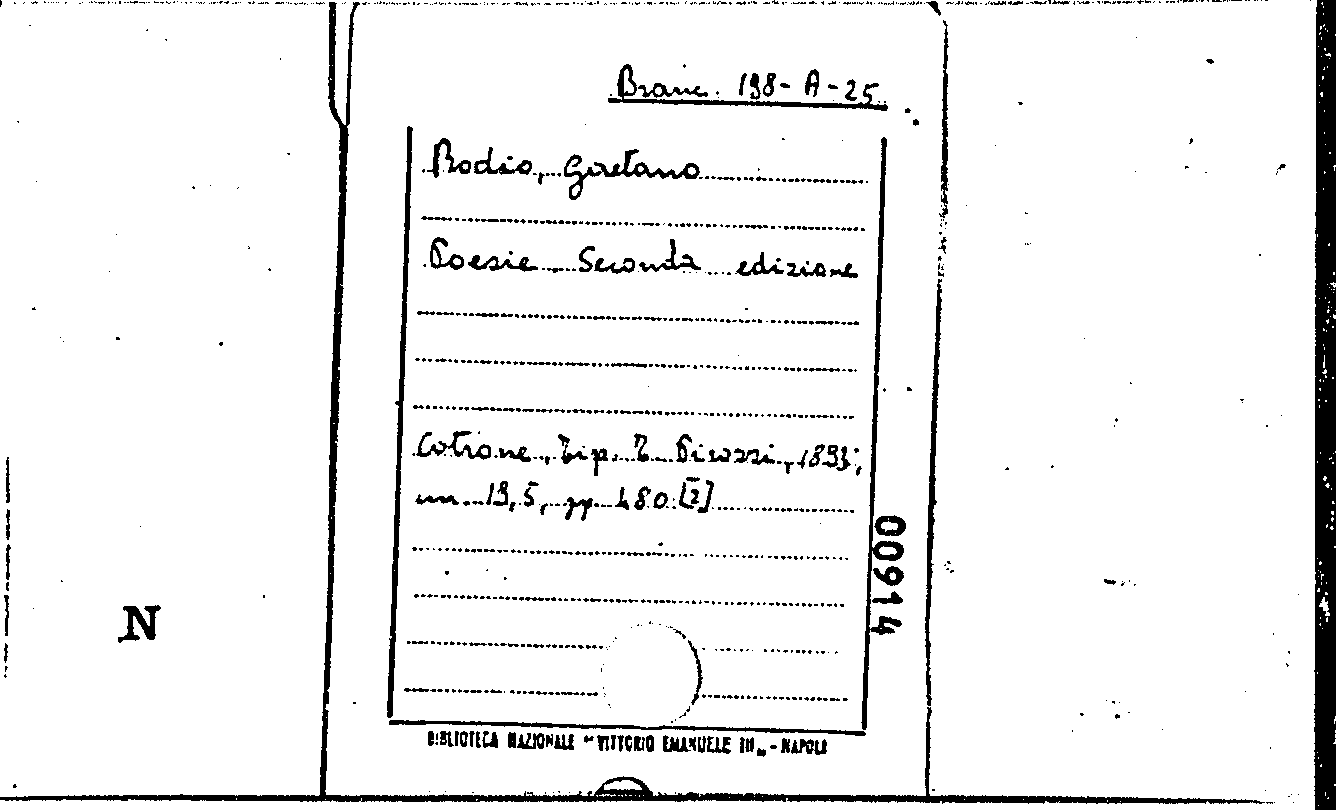 Branc. 198-A-25
Rodio, Gaetano
Poesie Seconda edizione
Cotrone, Tip. T. Pirozzi, 1893;
cm. 19,5, pp 480 [2]
00914
N
BIBLIOTECA NAZIONALE "VITTORIO EMANUELE III" - NAPOLI